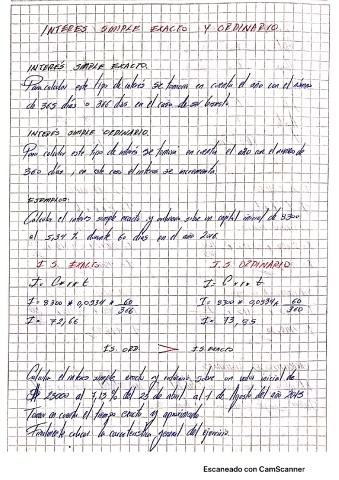 INTERES SIMPLE EXACTO Y ORDINARIO
INTERÉS SIMPLE EXACTO.
Para calcular este tipo de interés se tomará en cuenta el año con el número
de 365 días o 366 días en el caso de ser bisiesto.
INTERÉS SIMPLE ORDINARIO.
Para calcular este tipo de interés se tomará en cuenta el año con el número de
360 días, en este caso el interés se incrementa.
EJEMPLOS:
Calcular el interés simple exacto y ordinario sobre un capital inicial de 8300
al 5,34 % durante 60 días en el año 2016.
I. S. EXACTO I. S. ORDINARIO
I = C * r * t I = C * r * t
I = 8300 * 0,0534 * 60/366 I = 8300 * 0,0534 * 60/360
I = 72,66 I = 73,85
I.S. ORD > I.S. EXACTO
Calcular el interés simple, exacto y ordinario, sobre un valor inicial de
$ 25000 al 7,15 % del 25 de abril al 1 de Agosto del año 2015
Tomar en cuenta el tiempo exacto y aproximado
Finalmente colocar la característica general del ejercicio.
Escaneado con CamScanner